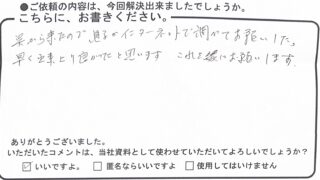 ●ご依頼の内容は、今回解決出来ましたでしょうか。
こちらに、お書きください。
急から来たので、息子がインターネットで調べてお願いした。
早く出来上り良かったと思います これを縁にお願いします
ありがとうございました。
いただいたコメントは、当社資料として使わせていただいてよろしいでしょうか？
☑ いいですよ。 □ 匿名ならいいですよ □ 使用してはいけません